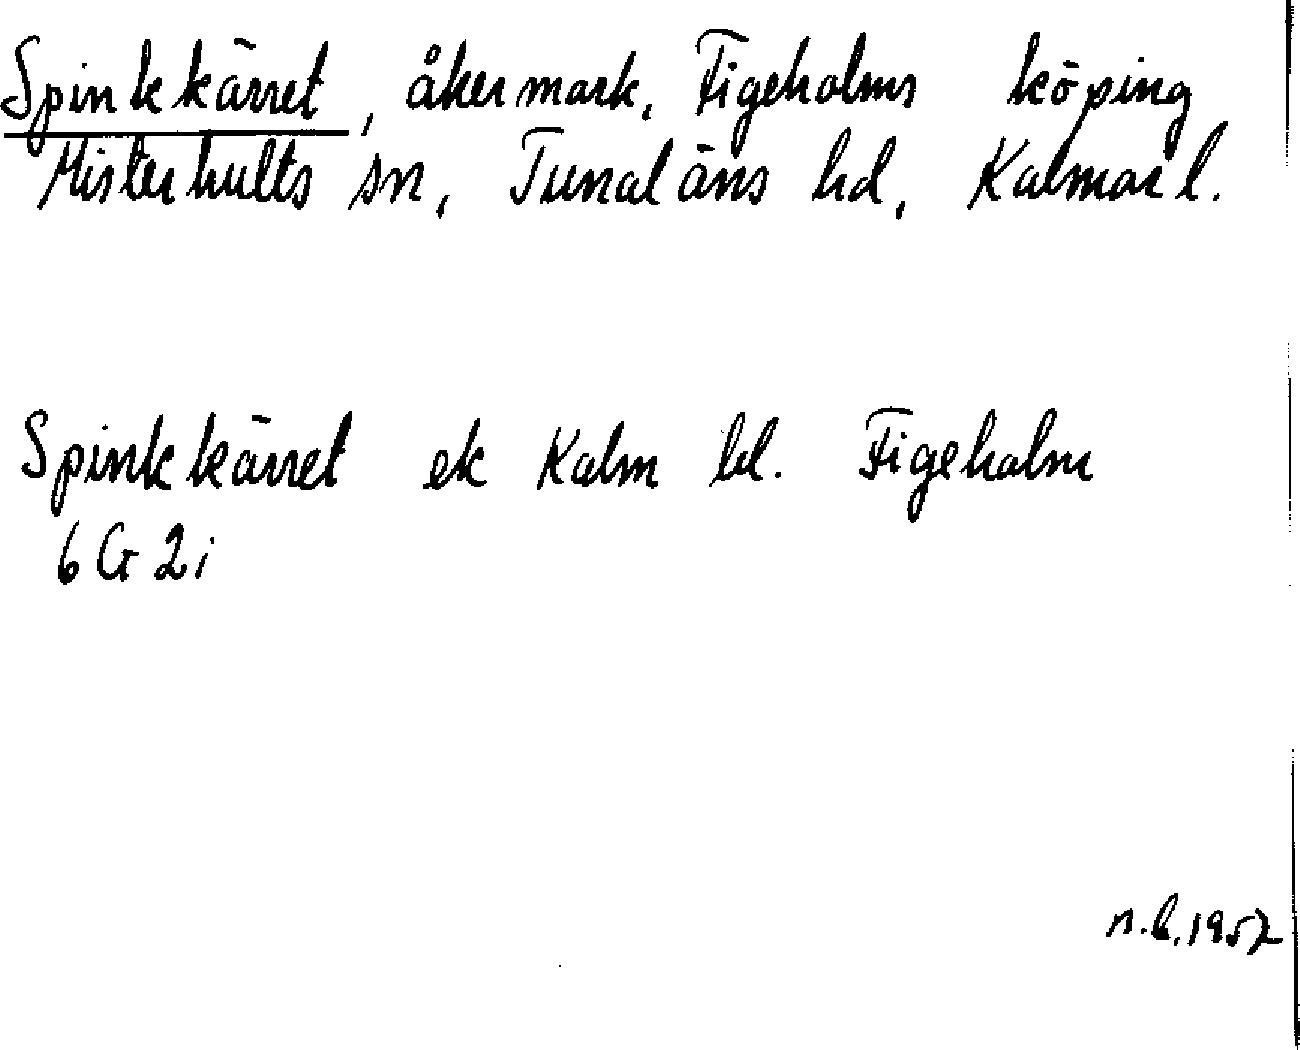 Spinkkärret, åkermark, Figeholms köping
Misterhults sn, Tunaläns hd, Kalmar l.
Spinkkärret ek Kalm bl. Figeholm
6G 2i
n.b. 1952